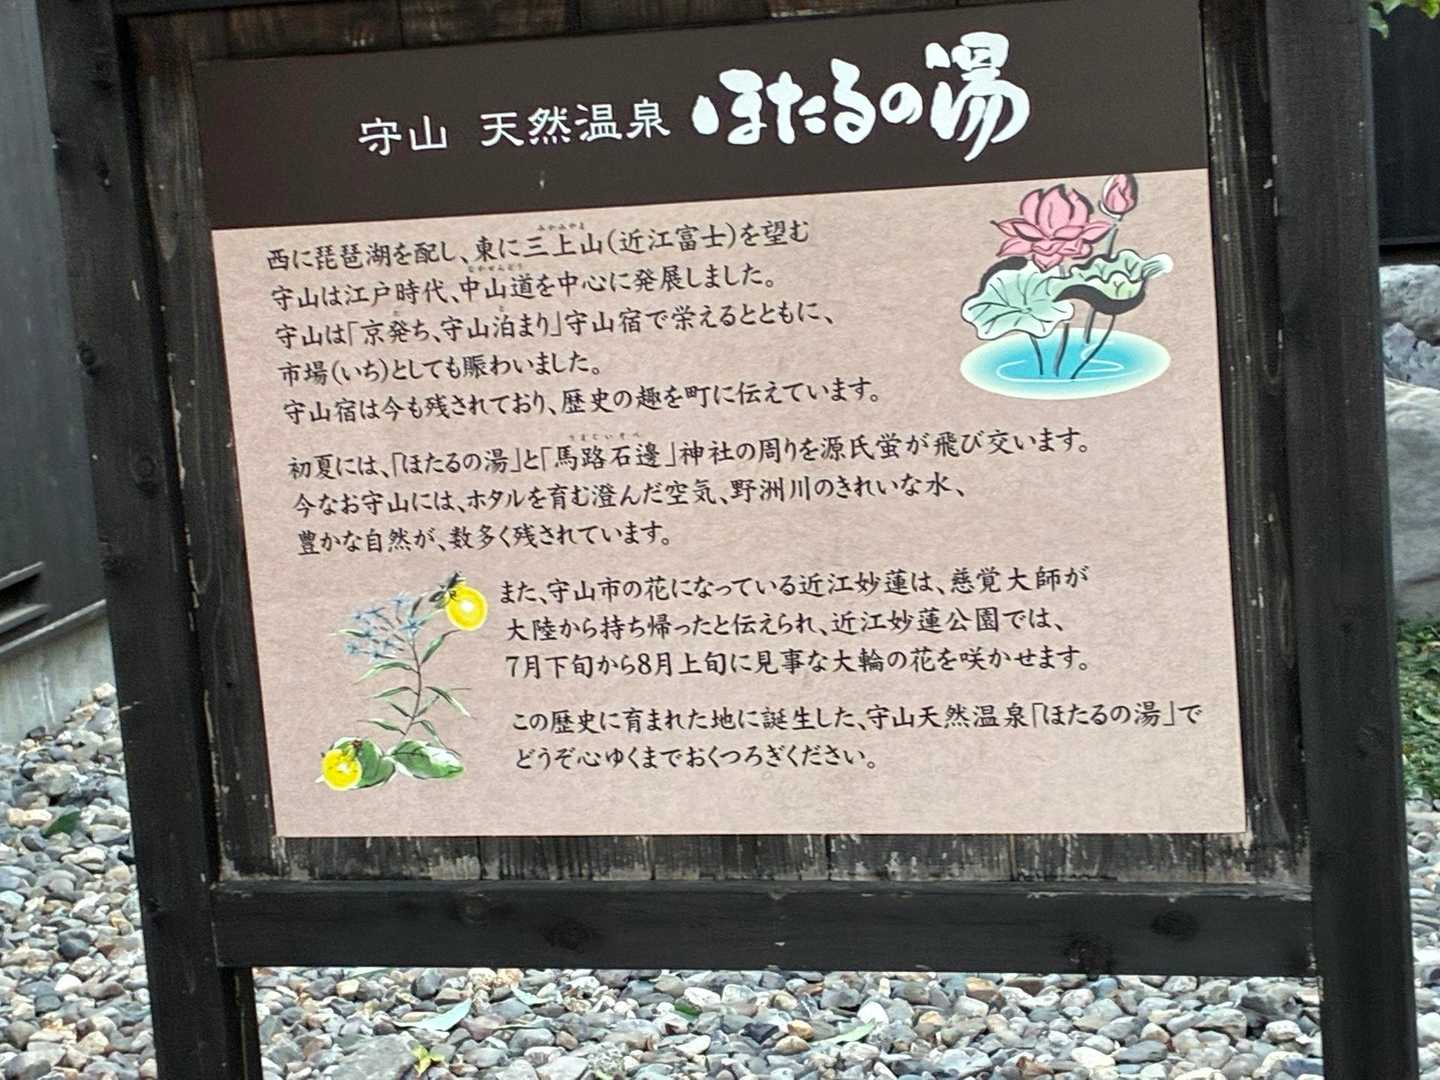 守山 天然温泉 ほたるの湯
西に琵琶湖を配し、東に三上山(近江富士)を望む
守山は江戸時代、中山道を中心に発展しました。
守山は「京発ち、守山泊まり」守山宿で栄えるとともに、
市場(いち)としても賑わいました。
守山宿は今も残されており、歴史の趣を町に伝えています。
初夏には、「ほたるの湯」と「馬路石邊」神社の周りを源氏蛍が飛び交います。
今なお守山には、ホタルを育む澄んだ空気、野洲川のきれいな水、
豊かな自然が、数多く残されています。
また、守山市の花になっている近江妙蓮は、慈覚大師が
大陸から持ち帰ったと伝えられ、近江妙蓮公園では、
7月下旬から8月上旬に見事な大輪の花を咲かせます。
この歴史に育まれた地に誕生した、守山天然温泉「ほたるの湯」で
どうぞ心ゆくまでおくつろぎください。